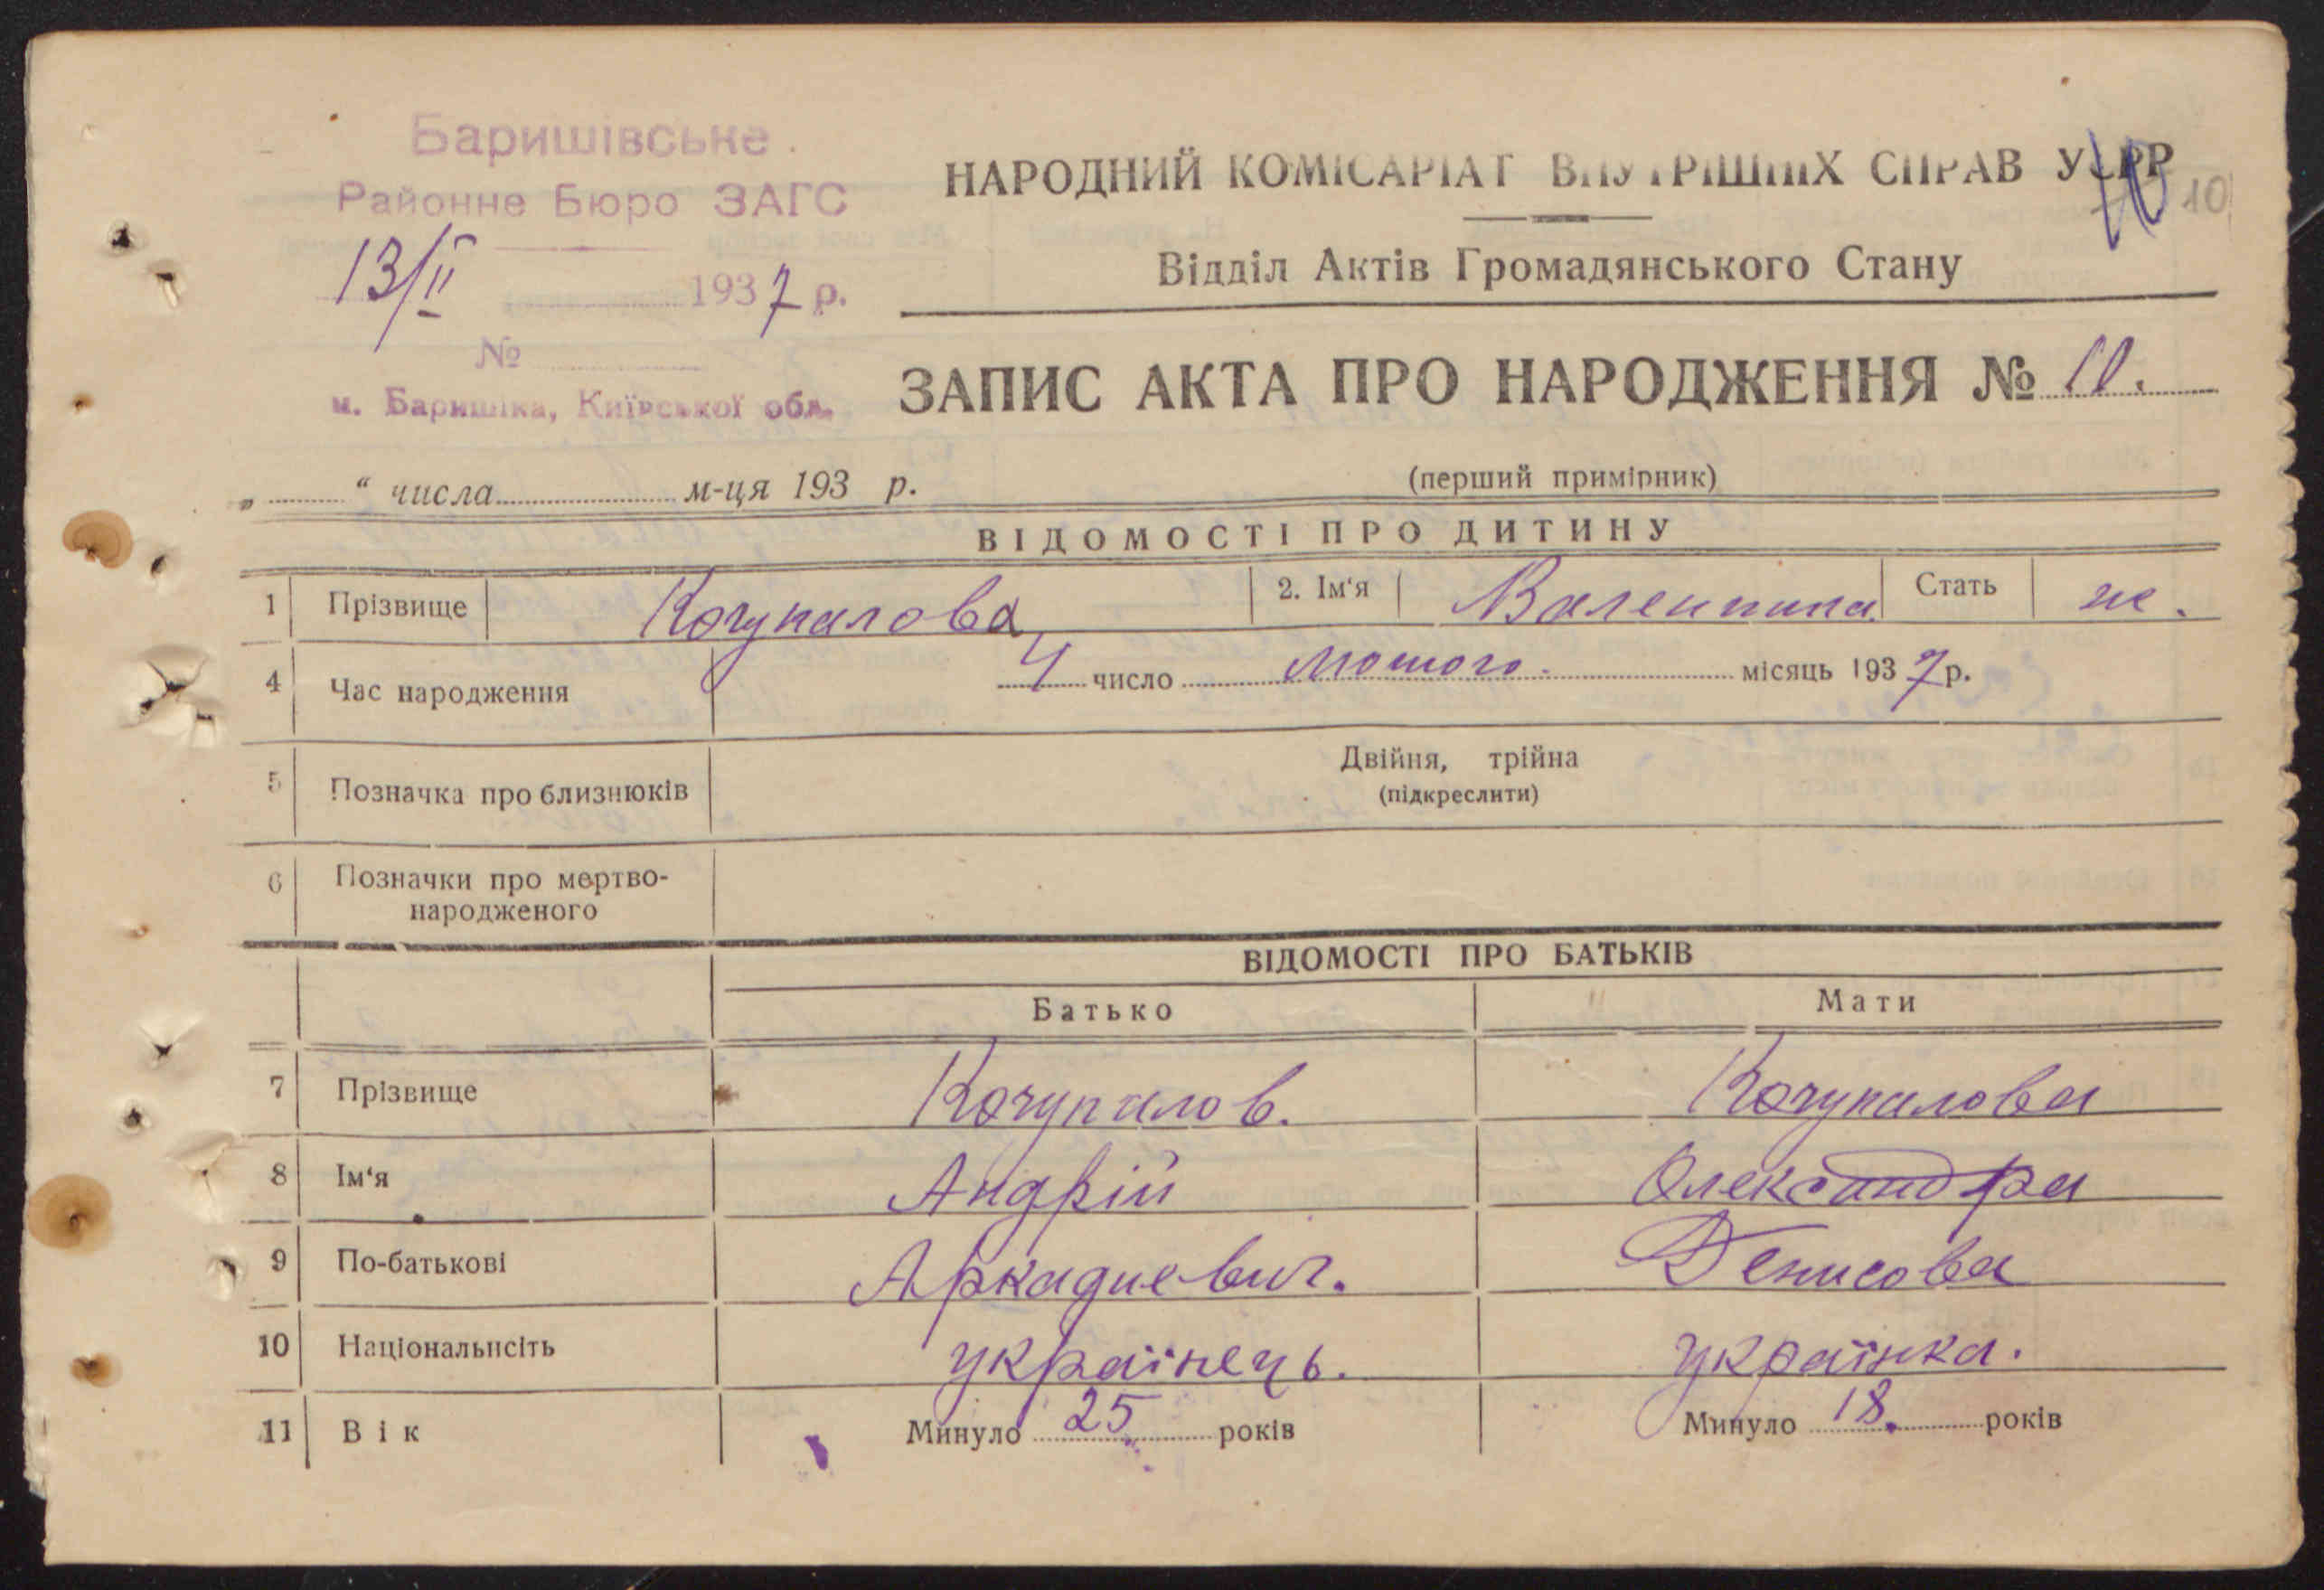 Баришівське
Районне Бюро ЗАГС
13/II 1937 р.
№
м. Баришівка, Київської обл.
НАРОДНИЙ КОМІСАРІАТ ВНУТРІШНІХ СПРАВ УСРР
10 10
Відділ Актів Громадянського Стану
ЗАПИС АКТА ПРО НАРОДЖЕННЯ № 10.
„ “ числа м-ця 193 р.
(перший примірник)
ВІДОМОСТІ ПРО ДИТИНУ
1 Прізвище Кочупалова 2. Ім‘я Валентина. Стать ж.
4 Час народження 4 число Лютого. місяць 1937 р.
5 Позначка про близнюків Двійня, трійна
(підкреслити)
6 Позначки про мертво-
народженого
ВІДОМОСТІ ПРО БАТЬКІВ
Батько Мати
7 Прізвище Кочупалов. Кочупалова
8 Ім‘я Андрій Олександра
9 По-батькові Аркадиевич. Денисова
10 Національнсіть українець. українка.
11 Вік Минуло 25 років Минуло 18. років